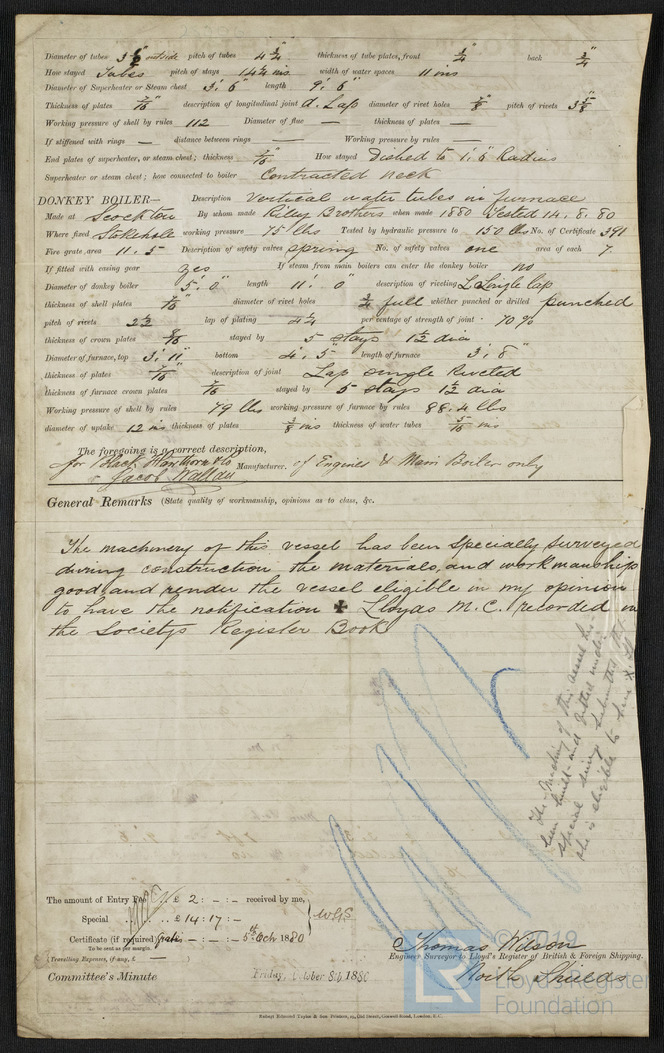 Diameter of tubes 3 1/2 outside pitch of tubes 4 3/4 thickness of tube plates, front 3/4" back 3/4"
How stayed Tubes pitch of stays 14 1/4 ins width of water spaces 11 ins
Diameter of Superheater or Steam chest 3' 6" length 9' 6"
Thickness of plates 7/16 description of longitudinal joint d. Lap diameter of rivet holes 7/8 pitch of rivets 3 5/8
Working pressure of shell by rules 112 Diameter of flue — thickness of plates —
If stiffened with rings — distance between rings — Working pressure by rules —
End plates of superheater, or steam chest; thickness 7/16 How stayed Dished to 1' 6" Radius
Superheater or steam chest; how connected to boiler Contracted neck
DONKEY BOILER— Description Vertical water tubes in furnace
Made at Stockton By whom made Riley Brothers when made 1880 Tested 14. 8. 80
Where fixed Stokehole working pressure 75 lbs Tested by hydraulic pressure to 150 lbs No. of Certificate 391
Fire grate area 11.5 Description of safety valves spring No. of safety valves one area of each 7.
If fitted with easing gear yes If steam from main boilers can enter the donkey boiler no
Diameter of donkey boiler 5' 0" length 11' 0" description of riveting Single lap
thickness of shell plates 7/16" diameter of rivet holes 3/4 full whether punched or drilled punched
pitch of rivets 2 1/2 lap of plating 4 1/4 per centage of strength of joint 70 %
thickness of crown plates 8/16 stayed by 5 stays 1 1/2 dia
Diameter of furnace, top 3' 11" bottom 4' 5" length of furnace 3' 8"
thickness of plates 7/16" description of joint Lap single Riveted
thickness of furnace crown plates 7/16 stayed by 5 stays 1 1/2 dia
Working pressure of shell by rules 79 lbs working pressure of furnace by rules 88.4 lbs
diameter of uptake 12 ins thickness of plates 3/8 ins thickness of water tubes 5/16 ins
The foregoing is a correct description,
for Black Hawthorn & Co Manufacturer. of Engines & Main Boiler only
Jacob
General Remarks (State quality of workmanship, opinions as to class, &c.
The machinery of this vessel has been specially surveyed
during construction the materials, and workmanship
good, and render the vessel eligible in my opinion
to have the notification ✠ Lloyds M.C. recorded in
the Societys Register Book
The Machinery of this vessel has
been built and fitted under
special survey submitted that
she is eligible to have
The amount of Entry Fee £ 2 : - : - received by me,
Special £ 14 : 17 : -
Certificate (if required) Gratis - : - : - 5th Oct 1880
To be sent as per margin.
(Travelling Expenses, if any, £ — )
Committee's Minute Friday, October 8th 1880
Thomas Wilson
Engineer Surveyor to Lloyd's Register of British & Foreign Shipping.
North Shields
© 2019
Lloyd's Register
Foundation
LR